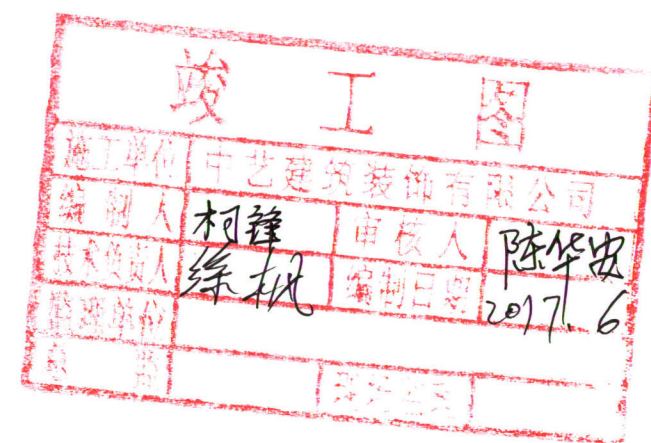 竣工图
施工单位 中艺建筑装饰有限公司
编制人 柯锋 审核人 陈华安
技术负责人 徐枫 编制日期 2017.6
监理单位
总监